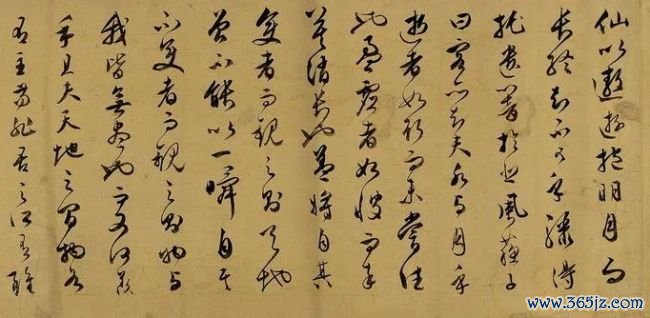 仙以遨遊抱明月而
長終知不可乎驟得
託遺響於悲風蘇子
曰客亦知夫水与月乎
逝者如斯而未嘗往
也盈虛者如彼而卒
莫消長也蓋將自其
變者而觀之則天地
曾不能以一瞬自其
不變者而觀之則物与
我皆無盡也而又何羨
乎且夫天地之間物各
有主苟非吾之所有雖
www.365jz.com